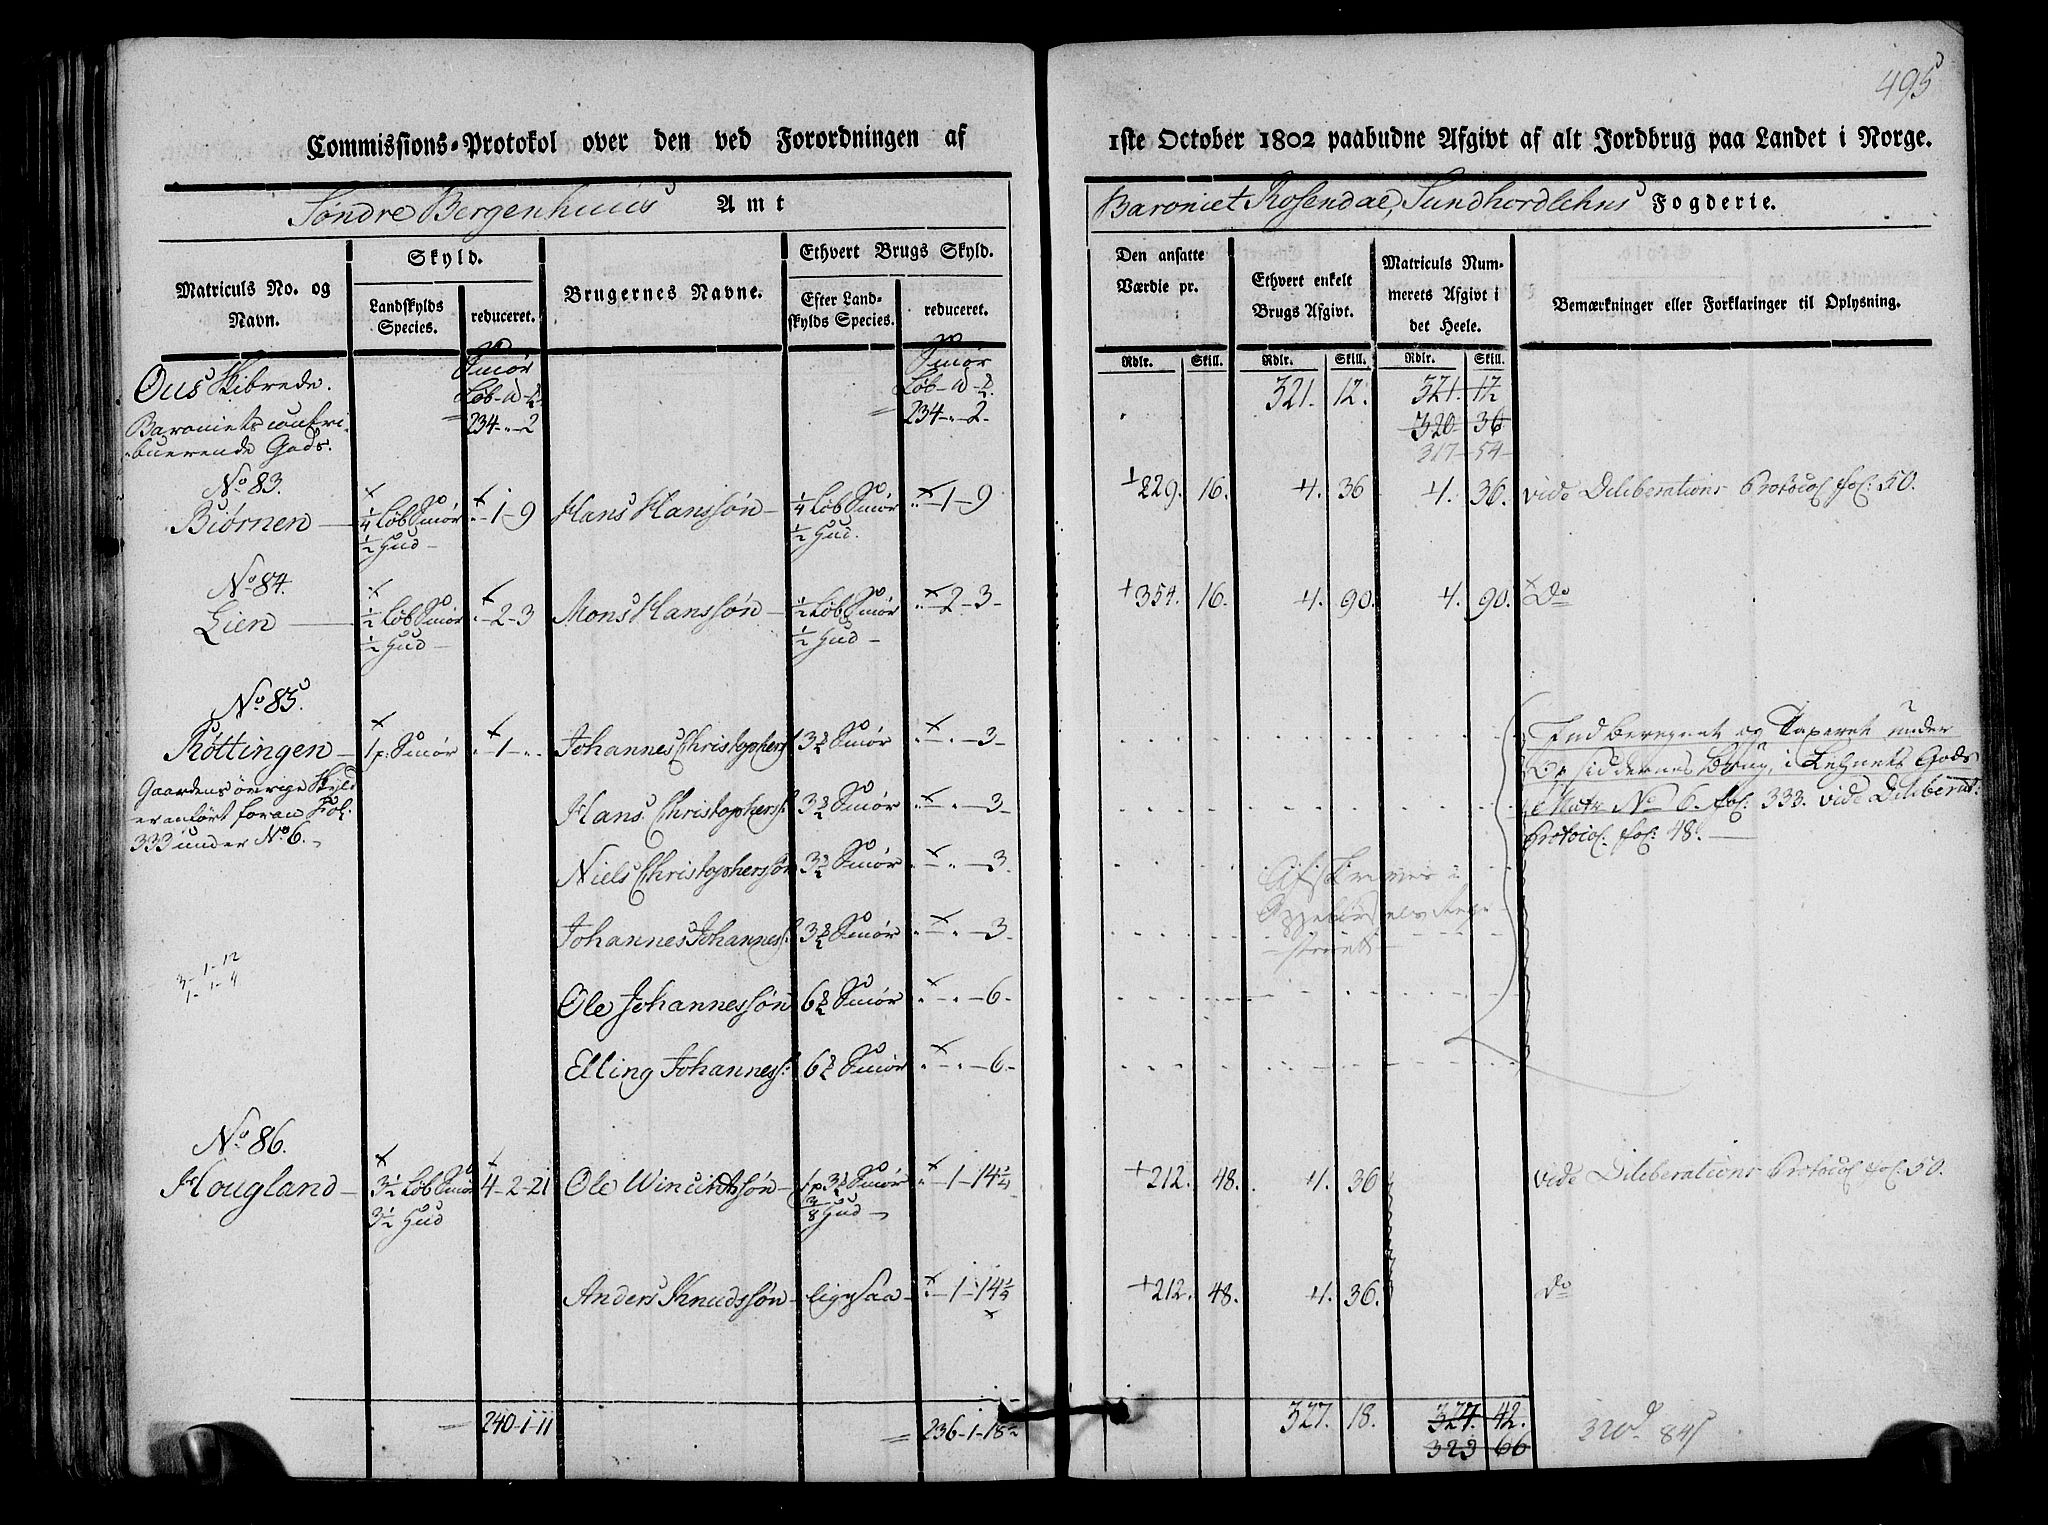 495
Commissions-Protokol over den ved Forordningen af 1ste October 1802 paabudne Afgivt af alt Jordbrug paa Landet i Norge.
Søndre Bergenhuus Amt
Baroniet Rosendal, Sundhordlehns Fogderie.
Matriculs No. og Navn.
Skyld.
Landskylds Species.
reduceret.
Brugernes Navne.
Ethvert Brugs Skyld.
Efter Landskylds Species.
reduceret.
Den ansatte Værdie pr.
Ethvert enkelt Brugs Afgivt.
Matriculs Nummerets Afgivt i det Heele.
Bemærkninger eller Forklaringer til Oplysning.
Rdlr. Skill. Rdlr. Skill. Rdlr. Skill.
Ous Skibrede.
Smør
Smør
321. 12. 321. 12
Baroniets contri-
234-"-2
234-"-2-
320 36
buerende Gods.
317-54-
No 83.
Biørnen 1/4 Løb Smør "-1-9 Hans Hanssøn 1/4 Løb Smør "-1-9
1/2 Hud 1/2 Hud.
229. 16. 4. 36 4. 36. vide Deliberations Protocol fol: 50.
No 84.
Lien 1/2 Løb Smør "-2-3 Mons Hanssøn 1/2 Løb Smør "-2-3-
1/2 Hud 1/2 Hud
354. 16. 4. 90. 4. 90. Do
No 85.
Röttingen 1 p: Smør "-1-" Johannes Christophers: 3 Smør "-"-3-
Gaardens øvrige Skyld
er anført foran Fol:
333 under No 6.
Hans Christophers: 3 Smør "-"-3-
Niels Christophersøn 3 Smør "-"-3-
Johannes Johannes: 3 Smør "-"-3-
Ole Johannessøn 6 Smør "-"-6-
Elling Johanness: 6 Smør "-"-6-
Indberegnet og Taxeret under
Opsiddernes Brug, i Lehnets Gods
Matr No 6. fol: 333. vide Deliberat:
Protocol. fol: 48.
3-1-12
1-1-4
No 86.
Hougland 3 1/2 Løb Smør 4-2-21 Ole Wincintssøn 1 p 3 Smør "-1-14
3 1/2 Hud 3/8 Hud
212. 48. 4. 36 vide Deliberations Protocol fol: 50.
Anders Knudssøn ligesaa "-1-14
212. 48. 4. 36. do
240-1-11
236-1-18
327. 18. 327. 42.
323 66
320 84